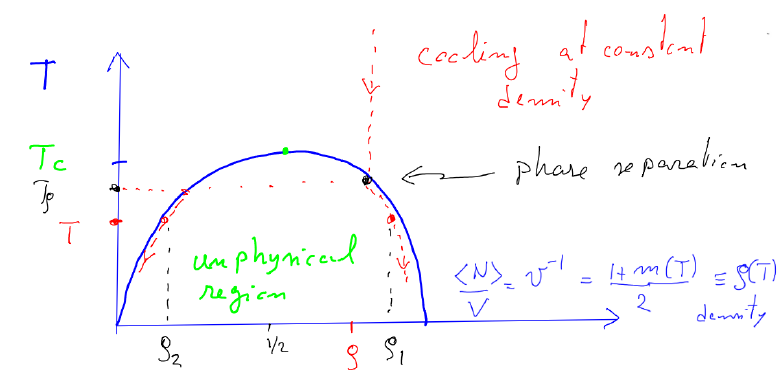 T
cooling at constant
density
Tc
Tρ
phase separation
T
unphysical
region
<N>/V = v⁻¹ = (1+m(T))/2 ≡ ρ(T)
density
ρ₂
1/2
ρ
ρ₁